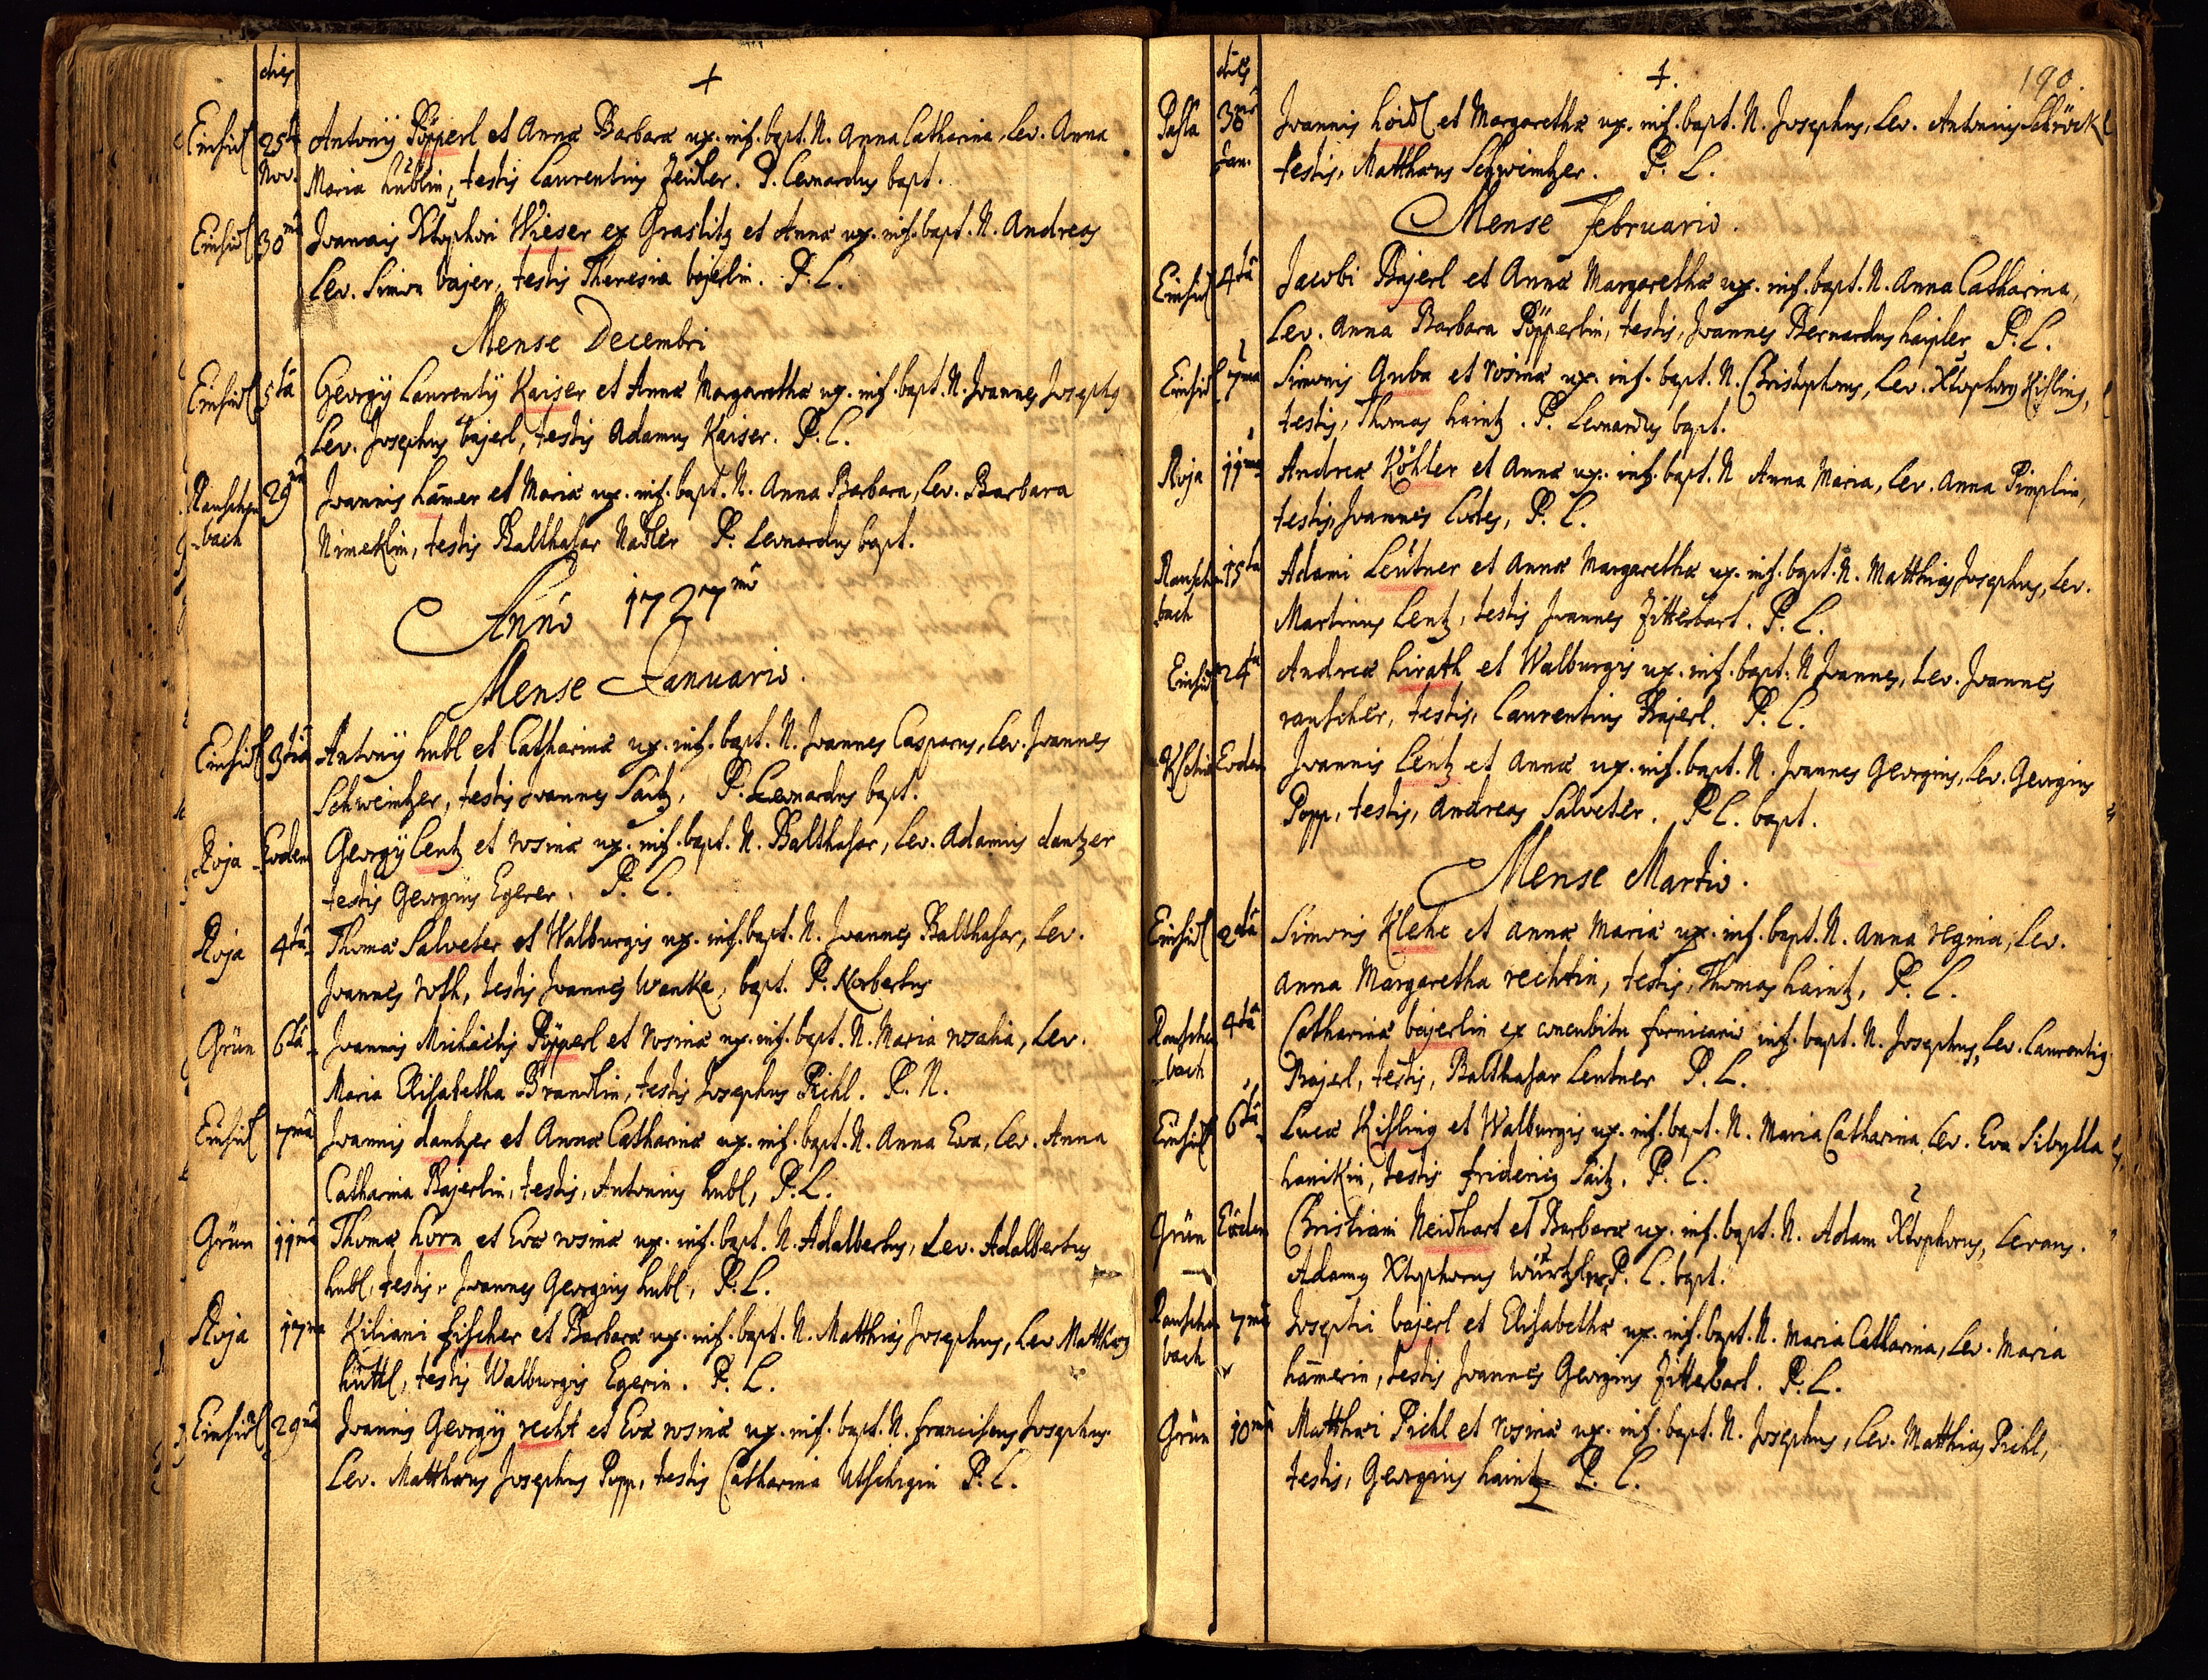 dies
+
Einsidl 25ta Antonij Pöpperl et Annæ Barbaræ ux. inf. bapt. N. Anna Catharina, Lev. Anna
Nov. Maria hüblin, testis Laurentius Zeidler. P. Leonardus bapt.
Einsidl 30ma Joannis Xtophori Wieser ex Graslitz et Annæ ux. inf. bapt. N. Andreas
Lev. Simon bajer, testis Theresia bajerlin. P. L.
Mense Decembri
Einsidl 5tâ Georgij Laurentij Kaiser et Annæ Margarethæ ux. inf. bapt. N. Joannes Josephus
Lev. Josephus bajerl, testis Adamus Kaiser. P. L.
Rauschen 29nâ Joannis ham̄er et Mariæ ux. inf. bapt. N. Anna Barbara, Lev. Barbara
-bach Nimeklin, testis Balthasar Nadler P. Leonardus bapt.
Anno 1727mo
Mense Januario.
Einsidl 3tiâ Antonij hubl et Catharinæ ux. inf. bapt. N. Joannes Casparus, Lev. Joannes
Schweintzer, testis Joannes Saitz, P. Leonardus bapt.
Roja Eodem Georgij Lentz et rosinæ ux. inf. bapt. N. Balthasar, Lev. Adamus dantzer
testis Georgius Egerer. P. L.
Roja 4tâ Thomæ Salveter et Walburgis ux. inf. bapt. N. Joannes Balthasar, Lev.
Joannes roth, testis Joannes Wenke, bapt. P. Norbertus
Grün 6tâ Joannis Michäelis Pöpperl et rosinæ ux. inf. bapt. N. Maria rosalia, Lev.
Maria Elisabetha Brandlin, testis Josephus Pichl. P. N.
Einsidl 7mâ Joannis dantzer et Annæ Catharinæ ux. inf. bapt. N. Anna Eva, Lev. Anna
Catharina Bajerlin, testis, Antonius hubl, P. L.
Grün 11mâ Thomæ horn et Evæ rosinæ ux. inf. bapt. N. Adalbertus, Lev. Adalbertus
hubl, testis, Joannes Georgius hubl, P. L.
Roja 17ma Kiliani fischer et Barbaræ ux. inf. bapt. N. Matthias Josephus, Lev. Matthæus
hüttl, testis Walburgis Egerin. P. L.
Einsidl 29nâ Joannis Georgij recht et Evæ rosinæ ux. inf. bapt. N. franciscus Josephus
Lev. Matthæus Josephus Popp, testis Catharina Utschigin P. L.
dies
+.
190.
Joannis hoidl et Margarethæ ux. inf. bapt. N. Josephus, Lev. Antonius Schröckl
Jan. testis, Matthæus Schweintzer. P. L.
Mense februario.
Einsidl 4tâ Jacobi Bajerl et Annæ Margarethæ ux. inf. bapt. N. Anna Catharina,
Lev. Anna Barbara Pöpperlin, testis, Joannes Bernardus haipler P. L.
Einsidl 7ma Simonis Guba et rosinæ ux. inf. bapt. N. Christophorus, Lev. Xtophorus Kisling,
testis, Thomas haintz. P. Leonardus bapt.
Roja 11ma Andreæ Köhler et Annæ ux. inf. bapt. N Anna Maria, Lev. Anna Pimplin,
testis, Joannes Lodes, P. L.
Rauschen 15ta Adami Leütner et Annæ Margarethæ ux. inf. bapt. N. Matthias Josephus, Lev.
bach Martinus Lentz, testis Joannes Zitterbart. P. L.
Einsidl 24ta Andreæ hirath et Walburgis ux. inf. bapt. N Joannes, Lev. Joannes
rauscher, testis, Laurentius Bajerl. P. L.
Eodem Joannis Lentz et Annæ ux. inf. bapt. N. Joannes Georgius, Lev. Georgius
Popp, testis, Andreas Salveter. P L. bapt.
Mense Martio.
Einsidl 2dâ Simonis Klehe et Annæ Mariæ ux. inf. bapt. N. Anna regina, Lev.
Anna Margaretha rechtin, testis, Thomas haintz, P. L.
Rauschen 4tâ Catharinæ bajerlin ex concubitu fornicario inf. bapt. N. Josephus, Lev. Laurentius
-bach Bajerl, testis, Balthasar Lentner P. L.
Einsidl 6tâ Lucæ Kisling et Walburgis ux. inf. bapt. N. Maria Catharina, Lev. Eva Sibylla
hanikin, testis fridericus Saitz. P. L.
Grün Eodem Christiani Neidhart et Barbaræ ux. inf. bapt. N. Adam Xtophorus, Levans.
Adamus Xtophorus Würtzler, P. L. bapt.
Rauschen 7mâ Josephi bajerl et Elisabethæ ux. inf. bapt. N. Maria Catharina, Lev. Maria
bach ham̄erin, testis Joannes Georgius Zitterbart. P. L.
Grün 10mâ Matthæi Pichl et rosinæ ux. inf. bapt. N. Josephus, Lev. Matthias Pichl,
testis, Georgius haintz P. L.